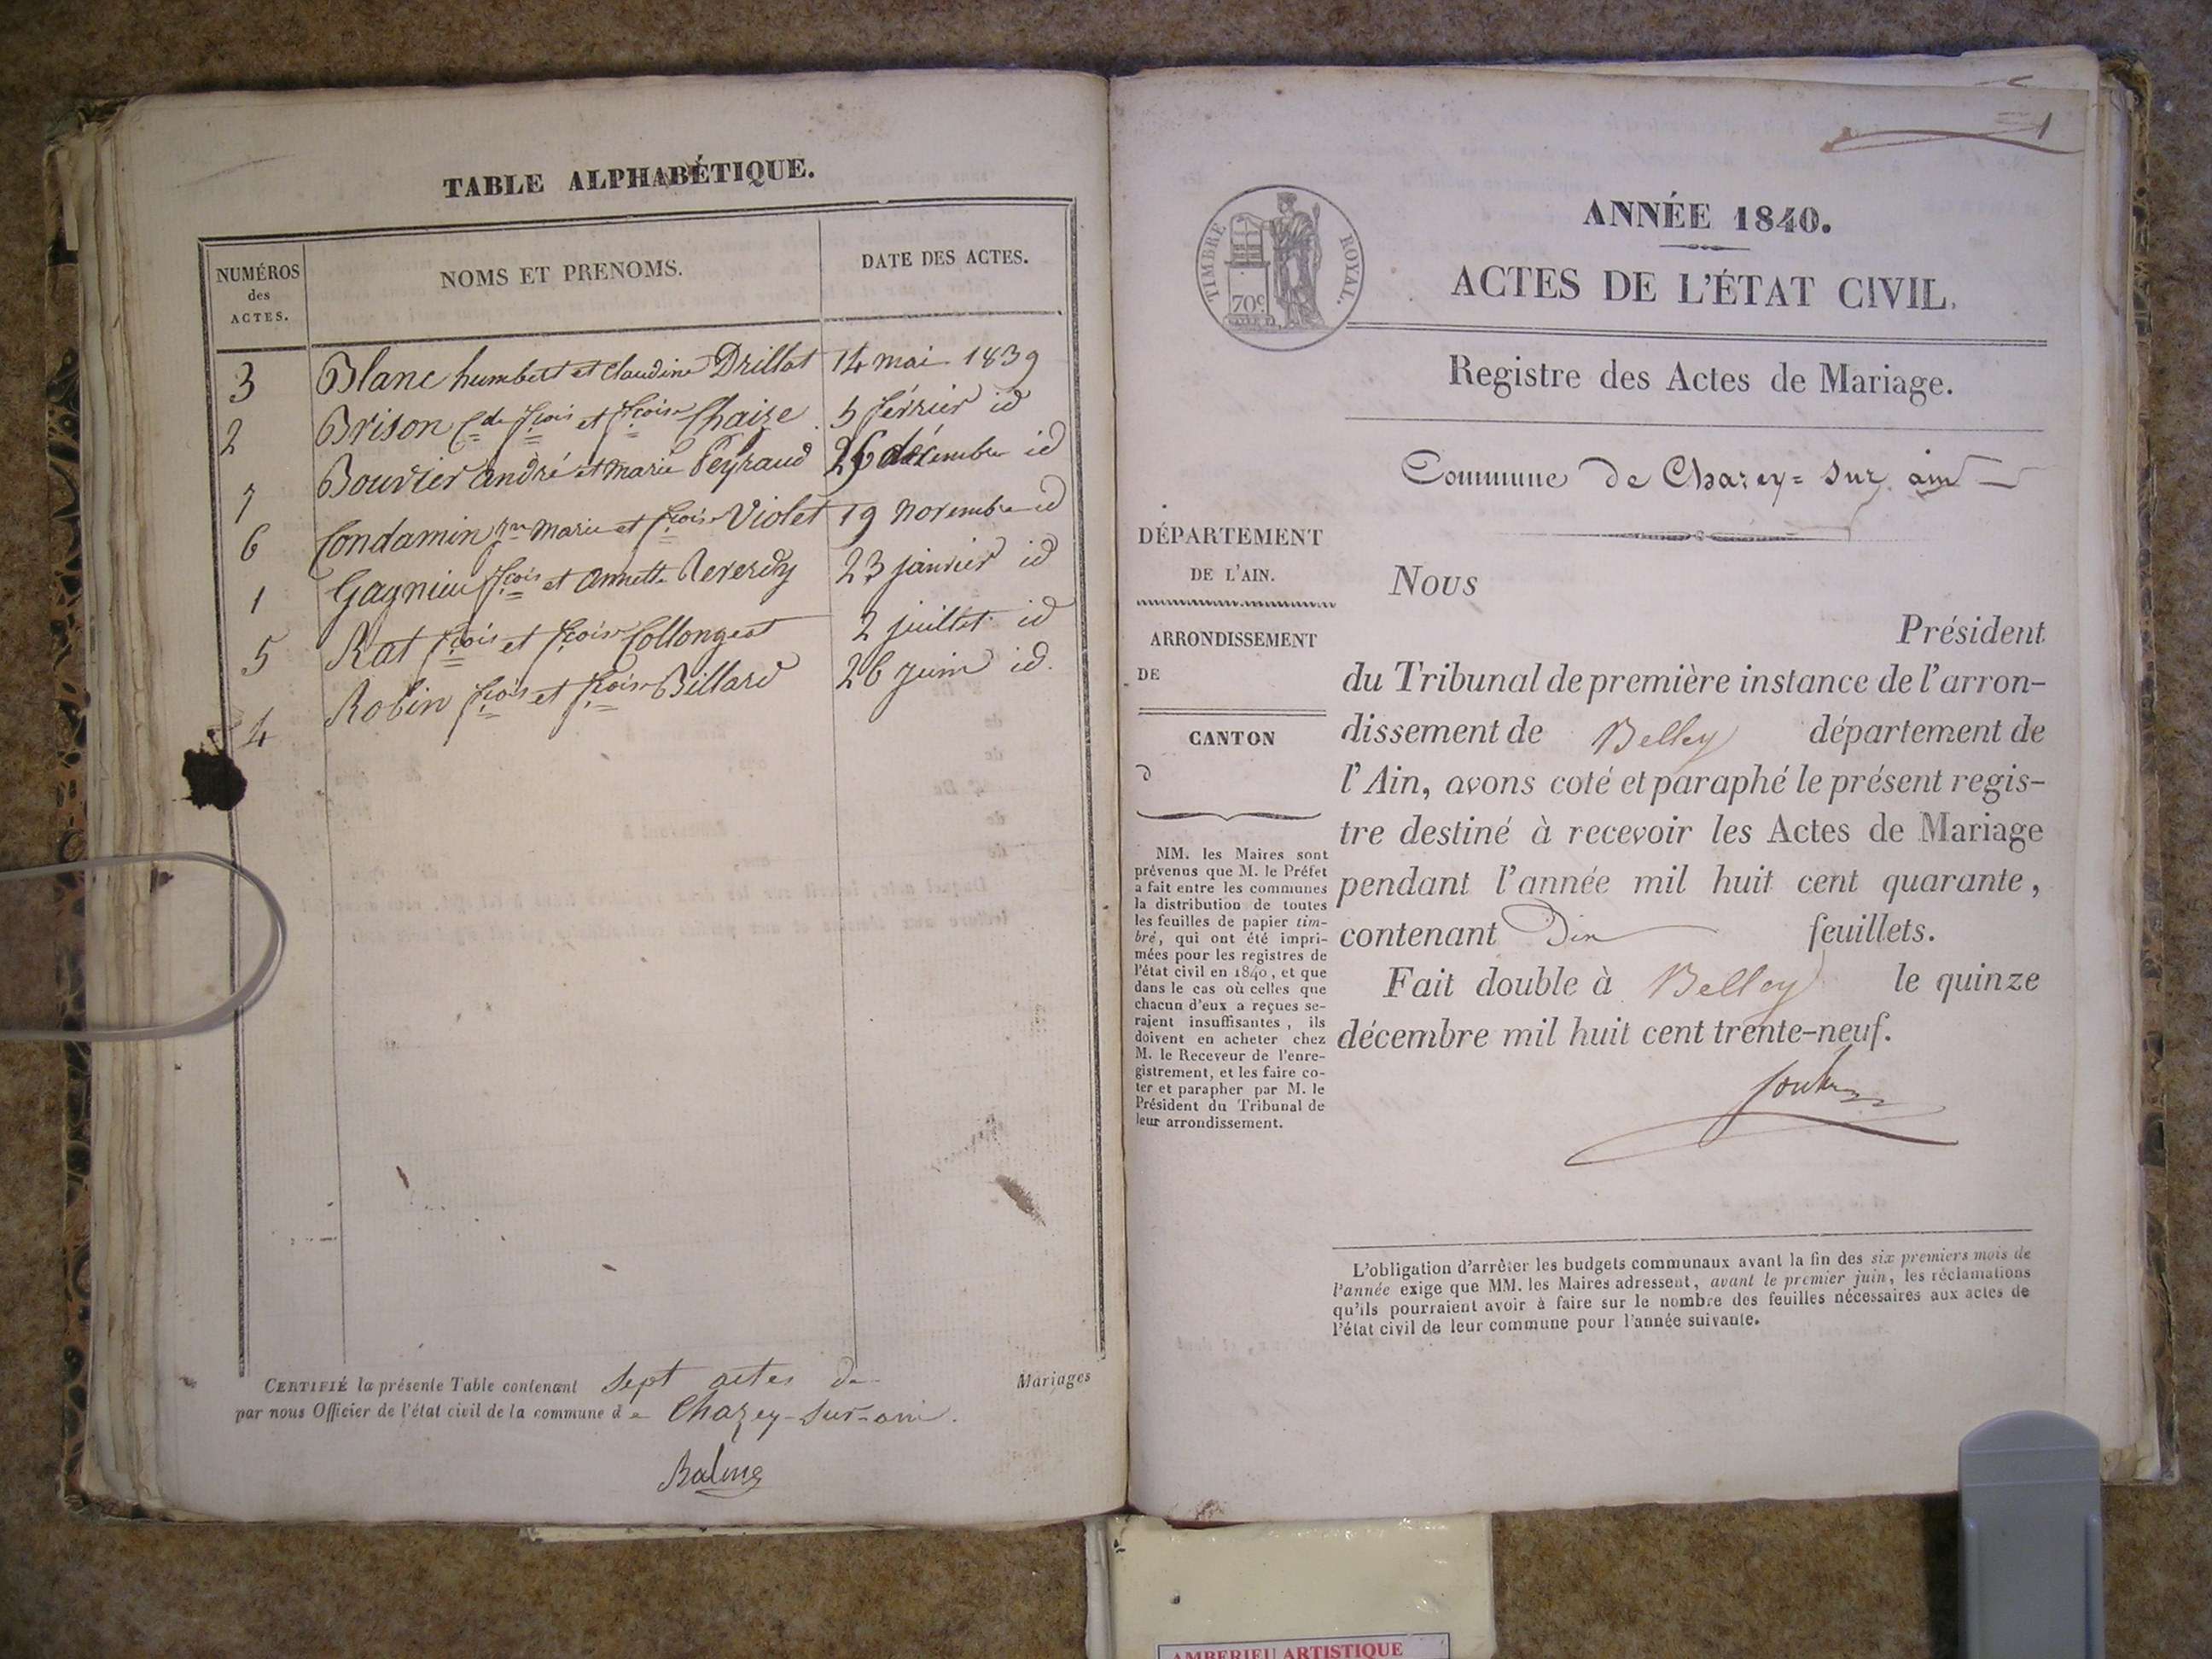 TABLE ALPHABÉTIQUE.
NUMÉROS des ACTES. NOMS ET PRENOMS. DATE DES ACTES.
3 Blanc humbert et Claudine Drillat 14 mai 1839
2 Brison Cde fçois et fçoise Chaize 5 février id
7 Bouvier andré et marie Peyraud 26 décembre id
6 Condamin marie et fçoise Violet 19 novembre id
1 Gagnieu fçois et annette Reverdy 23 janvier id
5 Rat fçois et fçoise Collongeat 2 juillet id
4 Robin fçois et fçoise Billard 26 juin id.
CERTIFIÉ la présente Table contenant sept actes de Mariages
par nous Officier de l'état civil de la commune de Chazey-sur-ain.
Balme
1
TIMBRE ROYAL.
70c
ANNÉE 1840.
ACTES DE L'ÉTAT CIVIL.
Registre des Actes de Mariage.
Commune de Chazey=sur ain
DÉPARTEMENT
DE L'AIN.
ARRONDISSEMENT
DE
CANTON
d
MM. les Maires sont
prévenus que M. le Préfet
a fait entre les communes
la distribution de toutes
les feuilles de papier tim-
bré, qui ont été impri-
mées pour les registres de
l'état civil en 1840, et que
dans le cas où celles que
chacun d'eux a reçues se-
raient insuffisantes, ils
doivent en acheter chez
M. le Receveur de l'enre-
gistrement, et les faire co-
ter et parapher par M. le
Président du Tribunal de
leur arrondissement.
Nous
Président
du Tribunal de première instance de l'arron-
dissement de Belley département de
l'Ain, avons coté et paraphé le présent regis-
tre destiné à recevoir les Actes de Mariage
pendant l'année mil huit cent quarante,
contenant Dix feuillets.
Fait double à Belley le quinze
décembre mil huit cent trente-neuf.
L'obligation d'arrêter les budgets communaux avant la fin des six premiers mois de
l'année exige que MM. les Maires adressent, avant le premier juin, les réclamations
qu'ils pourraient avoir à faire sur le nombre des feuilles nécessaires aux actes de
l'état civil de leur commune pour l'année suivante.
AMBERIEU ARTISTIQUE